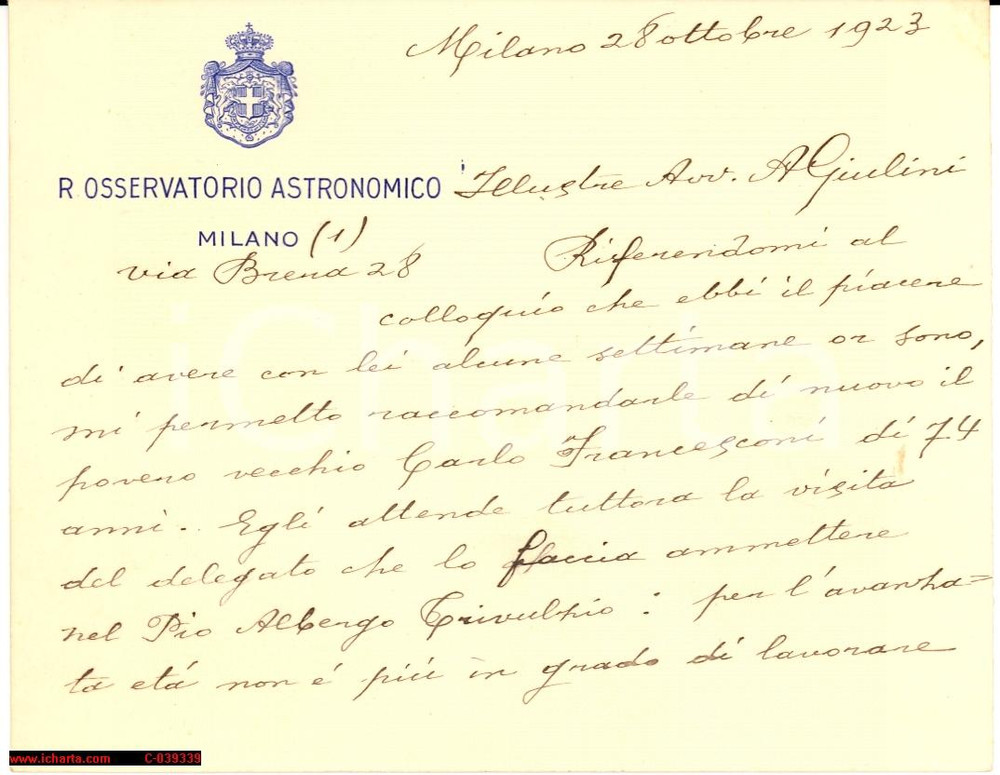 Milano 28 ottobre 1923
R. OSSERVATORIO ASTRONOMICO
MILANO (1)
via Brera 28
Illustre Avv. A Giulini
Riferendomi al
colloquio che ebbi il piacere
di avere con lei alcune settimane or sono,
mi permetto raccomandarle di nuovo il
povero vecchio Carlo Francesconi di 74
anni. Egli attende tuttora la visita
del delegato che lo faccia ammettere
nel Pio Albergo Trivulzio: per l'avanza=
ta etá non é piú in grado di lavorare
iCharta
www.icharta.com C-039339